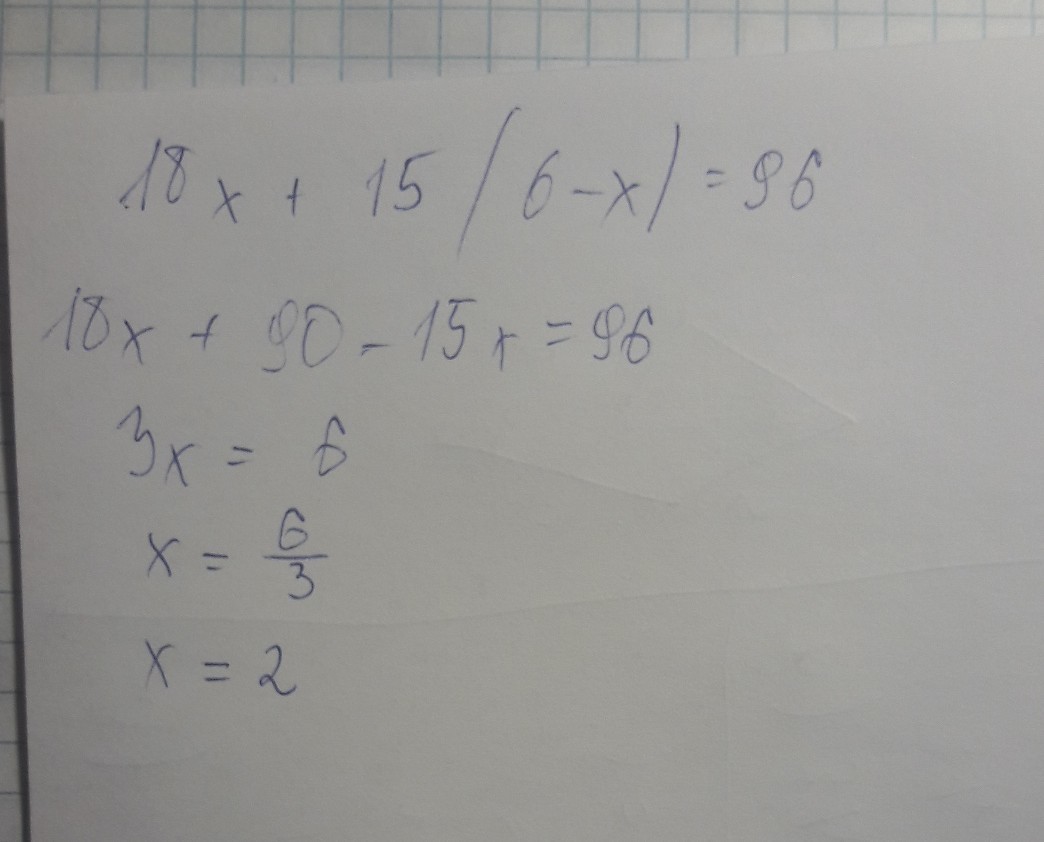 18x + 15(6-x) = 96
18x + 90 - 15x = 96
3x = 6
x = 6/3
x = 2